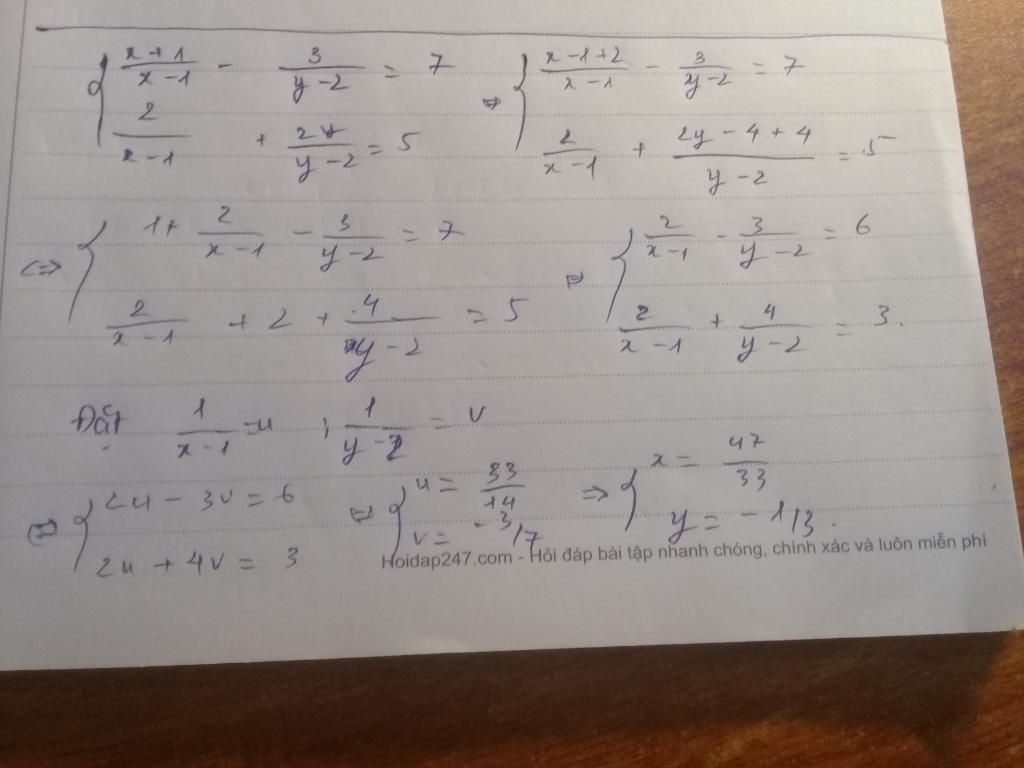 { (x+1)/(x-1) - 3/(y-2) = 7 ⇔ { (x-1+2)/(x-1) - 3/(y-2) = 7
2/(x-1) + 2y/(y-2) = 5 2/(x-1) + (2y-4+4)/(y-2) = 5
<=> { 1 + 2/(x-1) - 3/(y-2) = 7 ⇔ { 2/(x-1) - 3/(y-2) = 6
2/(x-1) + 2 + 4/(y-2) = 5 2/(x-1) + 4/(y-2) = 3.
Đặt 1/(x-1) = u ; 1/(y-2) = v
⇔ { 2u - 3v = 6 ⇔ { u = 33/14 => { x = 47/33
2u + 4v = 3 v = -3/7 y = -1/3.
Hoidap247.com - Hỏi đáp bài tập nhanh chóng, chính xác và luôn miễn phí